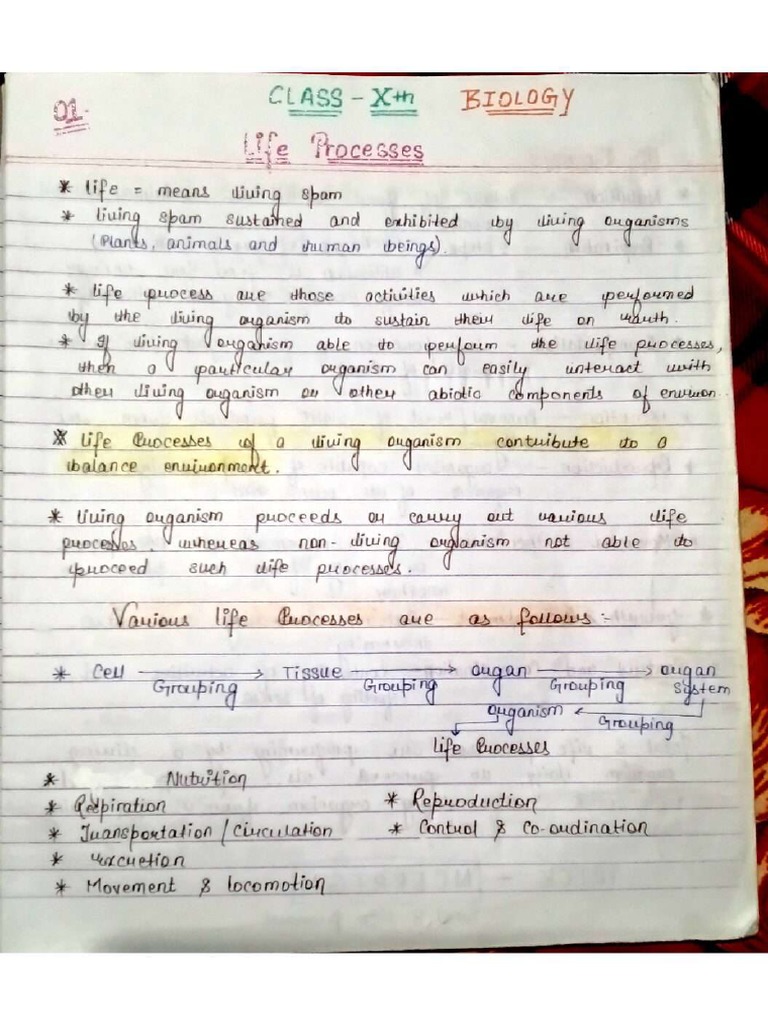 01.
CLASS - Xth BIOLOGY
Life Processes
* life = means living spam
* living spam sustained and exhibited by living organisms
(Plants, animals and human beings).
* life process are those activities which are performed
by the living organism to sustain their life on earth.
* If living organism able to perform the life processes,
then a particular organism can easily interact with
other living organism or other abiotic components of environ..
* life Processes of a living organism contribute to a
balance environment.
* living organism proceeds or carry out various life
processes. whereas non-living organism not able to
proceed such life processes.
Various life Processes are as follows :-
* Cell → Tissue → organ → organ
Grouping Grouping Grouping System
organism ← Grouping
life Processes
* Nutrition
* Respiration * Reproduction
* Transportation / Circulation * Control & Co-ordination
* Excretion
* Movement & locomotion